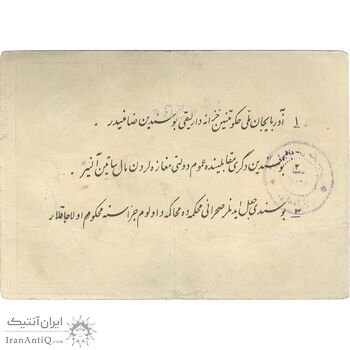 ۱ آذربایجان ملی حکومتنین خزانه دارلیقی بو سندین ضامنیدر.
۲ بو سندین دگری مقابلینده عموم دولتی مغازه لردن مال ساتین آلنیر.
۳ بو سندی جعل ایدنلر صحرائی محکمه ده محاکمه و اولوم جزاسنه محکوم اولاجاقلار
ایران آنتیک
IranAntiQ.com